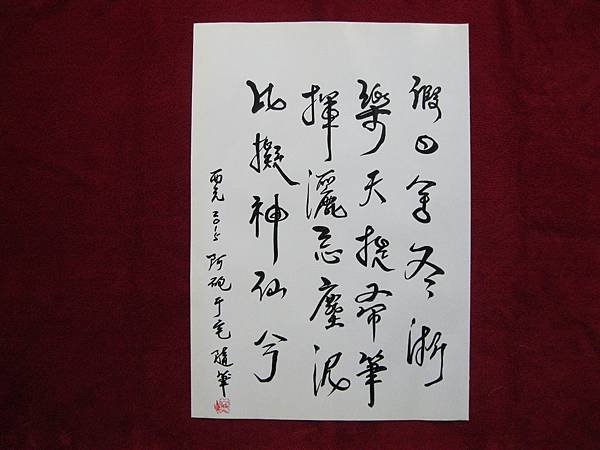 假日余冬淅
樂天提帚筆
揮灑忘塵泥
比擬神仙兮
西元二〇一五 阿砲于宅隨筆